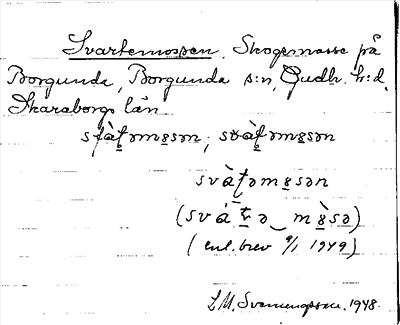 Svartemossen. Skogsmosse på
Borgunda, Borgunda s:n, Gudh. h:d.
Skaraborgs län
svàt̪əmɵsən, svàt̪əmɵsən
svàt̪əmɵsən
(svát̪ə‿mɵ̀sə)
(enl. brev 9/1 1949)
L.M. Svenungsson. 1948.